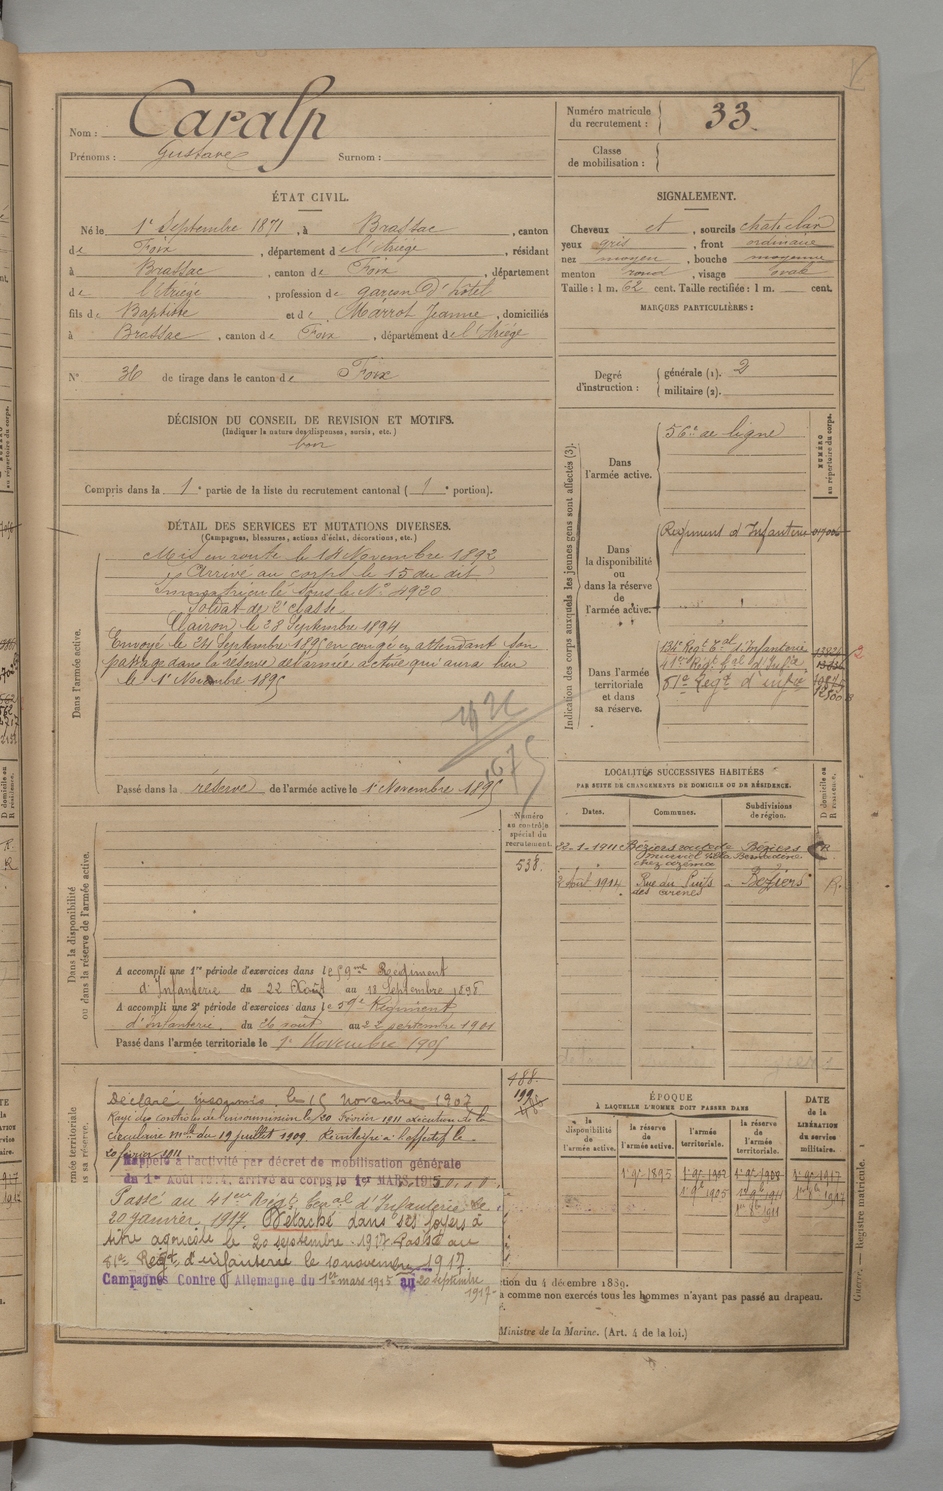 Nom : Caralp
Prénoms : Gustave Surnom :
Numéro matricule du recrutement : 33.
Classe de mobilisation :
ÉTAT CIVIL.
Né le 1er Septembre 1871, à Brassac, canton
de Foix, département de l'Ariège, résidant
à Brassac, canton de Foix, département
de l'Ariège, profession de garçon d'hôtel
fils de Baptiste et de Marrot Jeanne, domiciliés
à Brassac, canton de Foix, département de l'Ariége
N° 36 de tirage dans le canton de Foix
SIGNALEMENT.
Cheveux et, sourcils chat. clair
yeux gris, front ordinaire
nez moyen, bouche moyenne
menton rond, visage ovale
Taille : 1 m. 62 cent. Taille rectifiée : 1 m. cent.
MARQUES PARTICULIÈRES :
Degré d'instruction : générale (1). 2
militaire (2).
DÉCISION DU CONSEIL DE REVISION ET MOTIFS.
(Indiquer la nature des dispenses, sursis, etc.)
bon
Compris dans la 1e partie de la liste du recrutement cantonal (1e portion).
DÉTAIL DES SERVICES ET MUTATIONS DIVERSES.
(Campagnes, blessures, actions d'éclat, décorations, etc.)
Dans l'armée active.
Mis en route le 14 Novembre 1892
Arrivé au corps le 15 du dit
Immatriculé sous le N° 4920
Soldat de 2e classe
Clairon le 23 Septembre 1894
Envoyé le 24 Septembre 1895 en congé en attendant son
passage dans la réserve de l'armée active qui aura lieu
le 1er Novembre 1895
Passé dans la réserve de l'armée active le 1er Novembre 1895
Indication des corps auxquels les jeunes gens sont affectés (3).
NUMÉRO au répertoire du corps.
Dans l'armée active.
56e de ligne
Dans la disponibilité ou dans la réserve de l'armée active.
Régiment d'Infanterie
Dans l'armée territoriale et dans sa réserve.
134e Regt Tal d'Infanterie
41er Regt Tal d'Infie
81e Regt d'infie
LOCALITÉS SUCCESSIVES HABITÉES
PAR SUITE DE CHANGEMENTS DE DOMICILE OU DE RÉSIDENCE.
Dates. Communes. Subdivisions de région. D domicile ou R résidence.
22-1-1911 Béziers route de Béziers R
chez
2 Août 1914 Rue du Puits Beziers R.
des arènes
Dans la disponibilité ou dans la réserve de l'armée active.
Numéro au contrôle spécial du recrutement.
538.
A accompli une 1re période d'exercices dans le 59me Regiment
d'Infanterie du 22 Août au 18 Septembre 1898
A accompli une 2e période d'exercices dans le 59e Régiment
d'infanterie, du 26 août au 22 septembre 1901
Passé dans l'armée territoriale le 1er Novembre 1905
Déclaré insoumis le 15 novembre 1907
Rayé des contrôles de l'insoumission le 20 Février 1911 exécution de la
circulaire mlle du 19 juillet 1909. Réintégré à l'effectif le
20 février 1911
Rappelé à l'activité par décret de mobilisation générale
du 1er Août 1914, arrivé au corps le 1er MARS 1915
Passé au 41eme Régt Teral d'Infanterie le
20 janvier 1917. Détaché dans ses foyers à
titre agricole le 20 septembre 1917. Passé au
81e Regt d'infanterie le 10 novembre 1917.
Campagnes Contre l'Allemagne du 1er mars 1915 au 20 septembre
1917
ÉPOQUE
À LAQUELLE L'HOMME DOIT PASSER DANS
la disponibilité de l'armée active. la réserve de l'armée active. l'armée territoriale. la réserve de l'armée territoriale.
DATE de la LIBÉRATION du service militaire.
tion du 4 décembre 1889.
a comme non exercés tous les hommes n'ayant pas passé au drapeau.
Ministre de la Marine. (Art. 4 de la loi.)